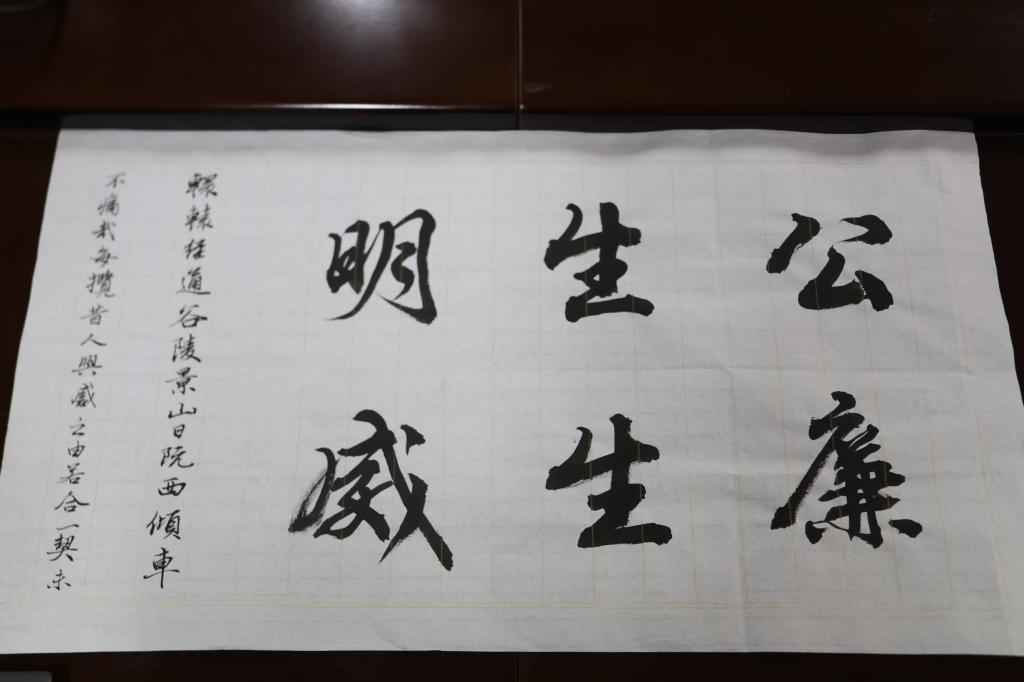 公廉
生生
明威
轘轅經通谷陵景山日阮西傾車
不痛哉每攬昔人興感之由若合一契未